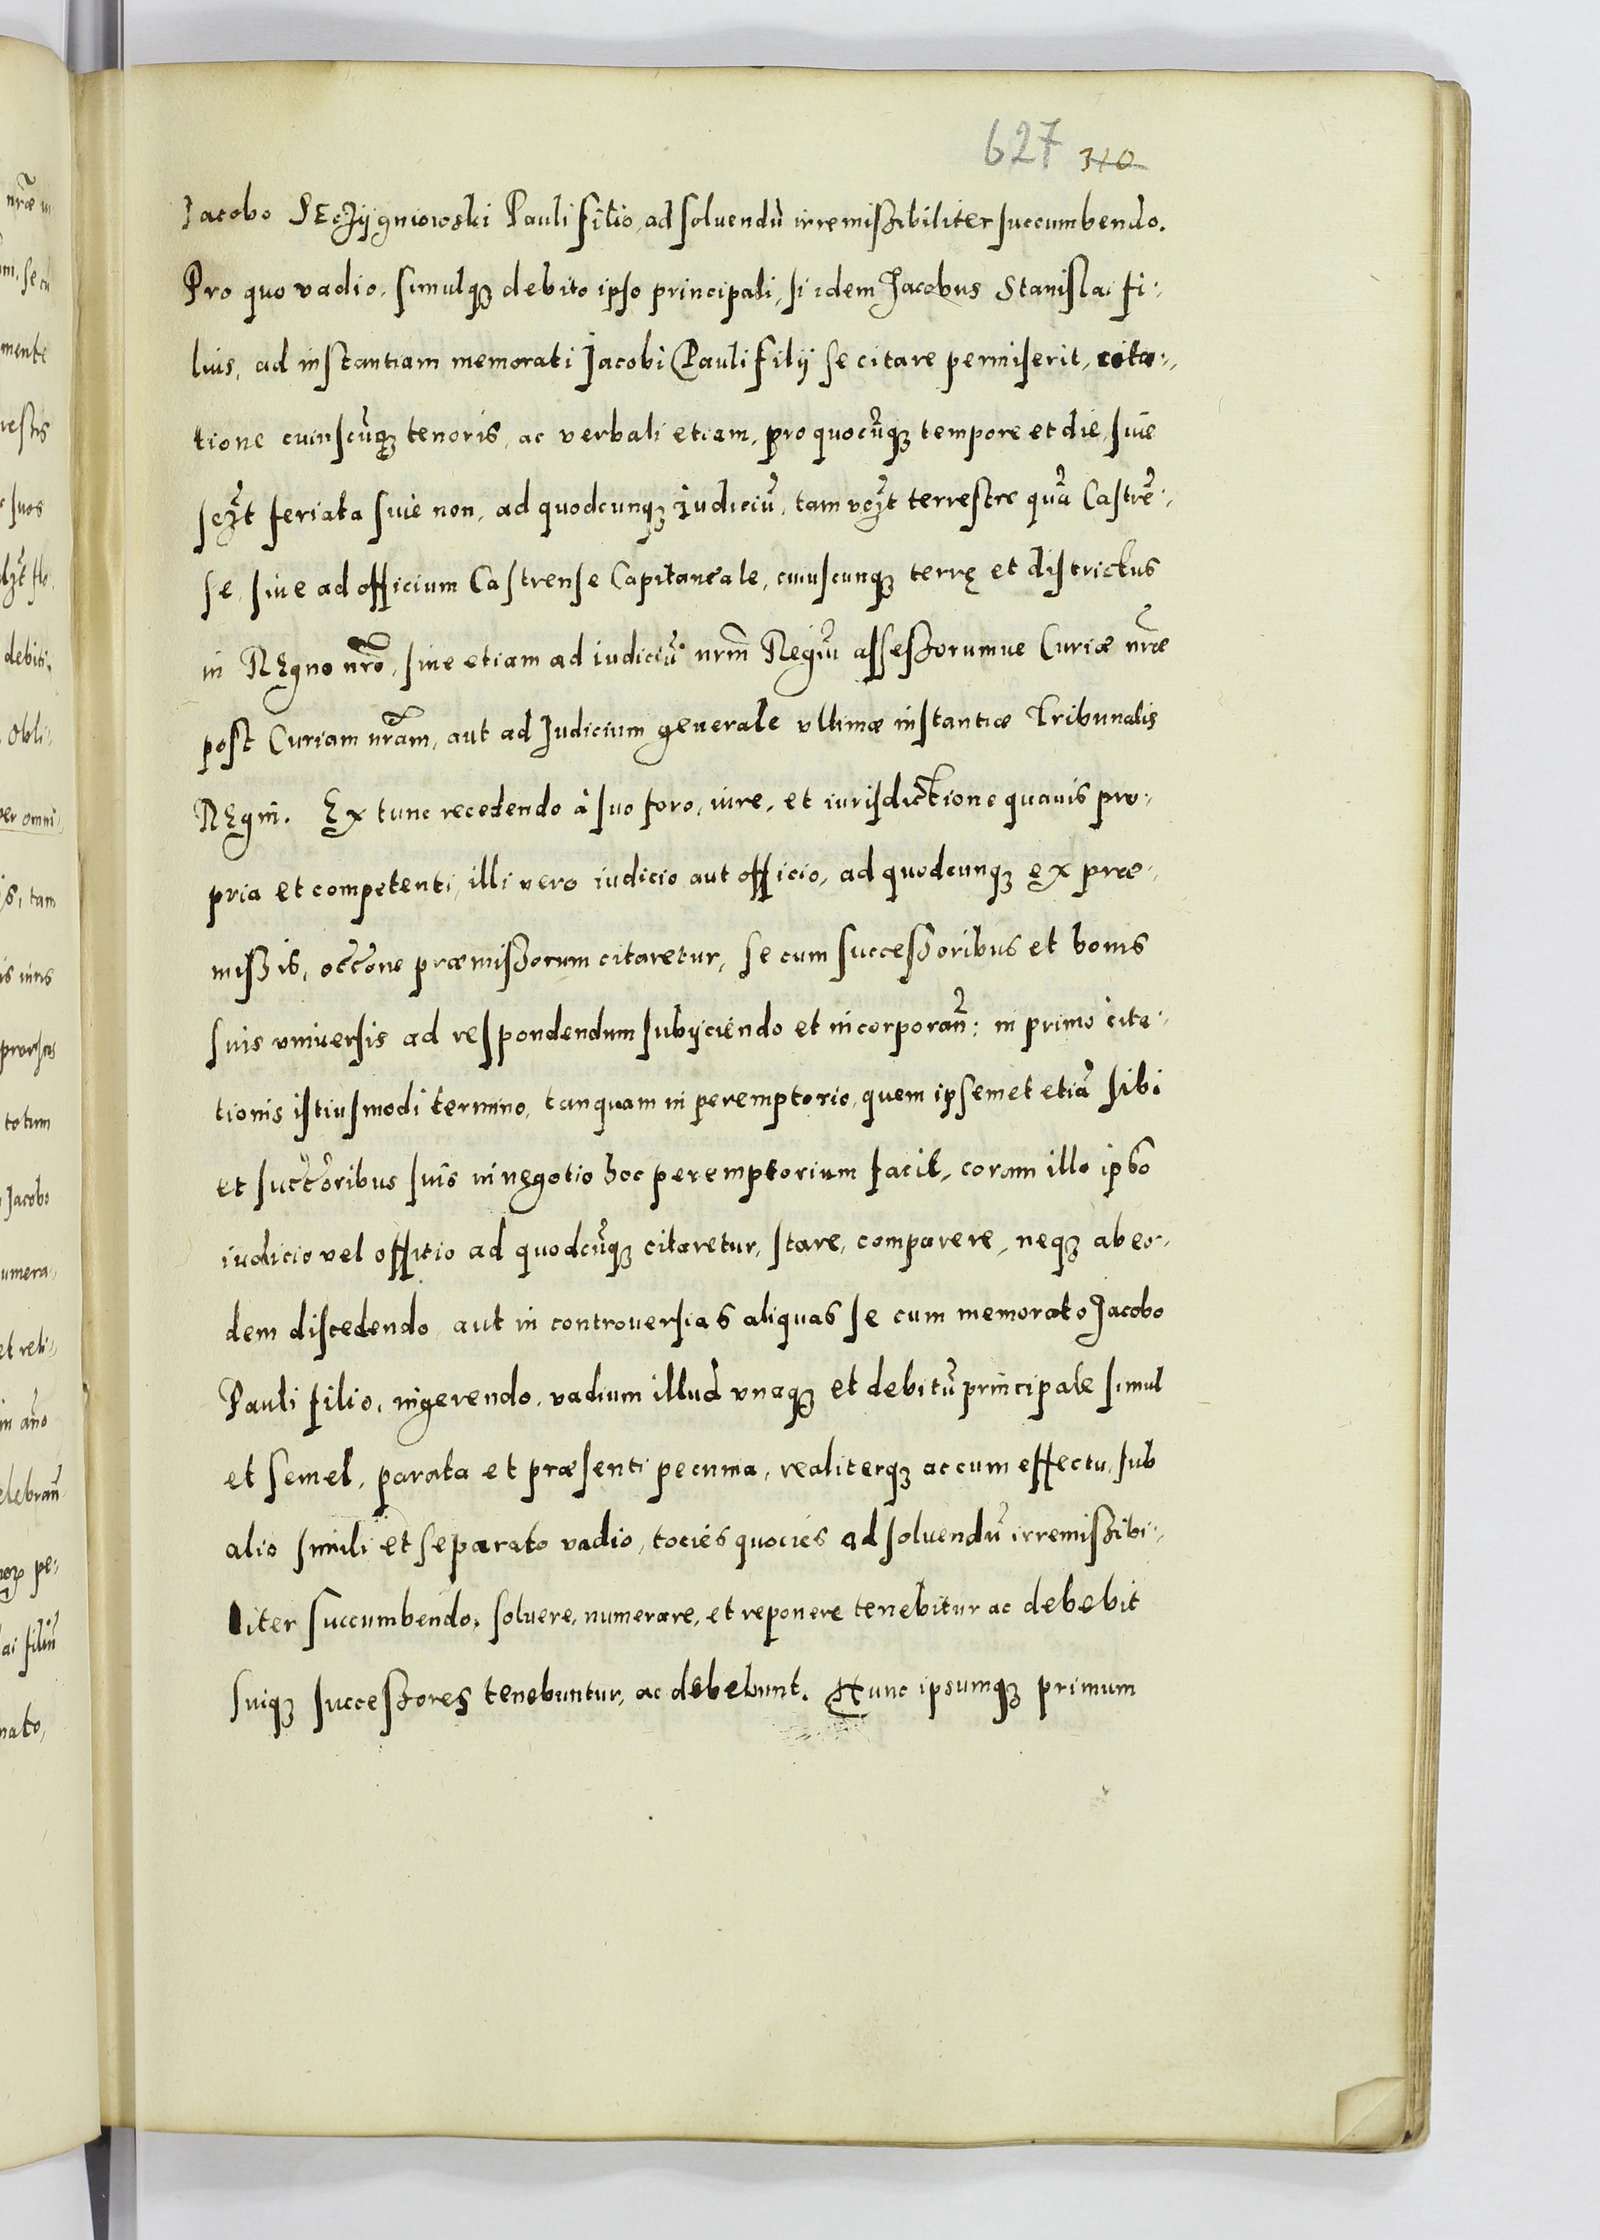 627 310
Jacobo Sczygniowski Pauli filio, ad soluendũ irremissibiliter succumbendo.
Pro quo vadio, simulqȝ debito ipso principali, si idem Jacobus Stanislai fi-
lius, ad instantiam memorati Jacobi Pauli filij se citare permiserit, cita-
tione cuiuscũqȝ tenoris, ac verbali etiam, pro quocũqȝ tempore et die, siue
sczt feriata siue non, ad quodcunqȝ iudiciũ, tam vczt terrestre quã Castrẽ-
se, siue ad officium Castrense Capitaneale, cuiuscunqȝ terrę et districtus
in Regno nrõ, siue etiam ad iudiciũ nrm̃ Regiũ assessorumue Curiæ nr̃æ
post Curiam nrãm, aut ad Judicium generale vltimæ instantiæ Tribunalis
Regni. Ex tunc recedendo à suo foro, iure, et iurisdictione quauis pro-
pria et competenti, illi vero iudicio aut officio, ad quodcunqȝ ex præ-
missis, occõne præmissorum citaretur, se cum successoribus et bonis
suis vniuersis ad respondendum subijciendo et incorporañ: in primo cita-
tionis istiusmodi termino, tanquam in peremptorio, quem ipsemet etiã sibi
et succõribus suis in negotio hoc peremptorium facit, coram illo ipso
iudicio vel offitio ad quodcũqȝ citaretur, stare, comparere, neqȝ ab eo-
dem discedendo, aut in controuersias aliquas se cum memorato Jacobo
Pauli filio, ingerendo, vadium illud vnaqȝ et debitũ principale simul
et semel, parata et præsenti pecunia, realiterqȝ ac cum effectu, sub
alio simili et separato vadio, tocies quocies ad soluendũ irremissibi-
liter succumbendo, soluere, numerare, et reponere tenebitur ac debebit
suiqȝ successores tenebuntur, ac debebunt. Nunc ipsumqȝ primum